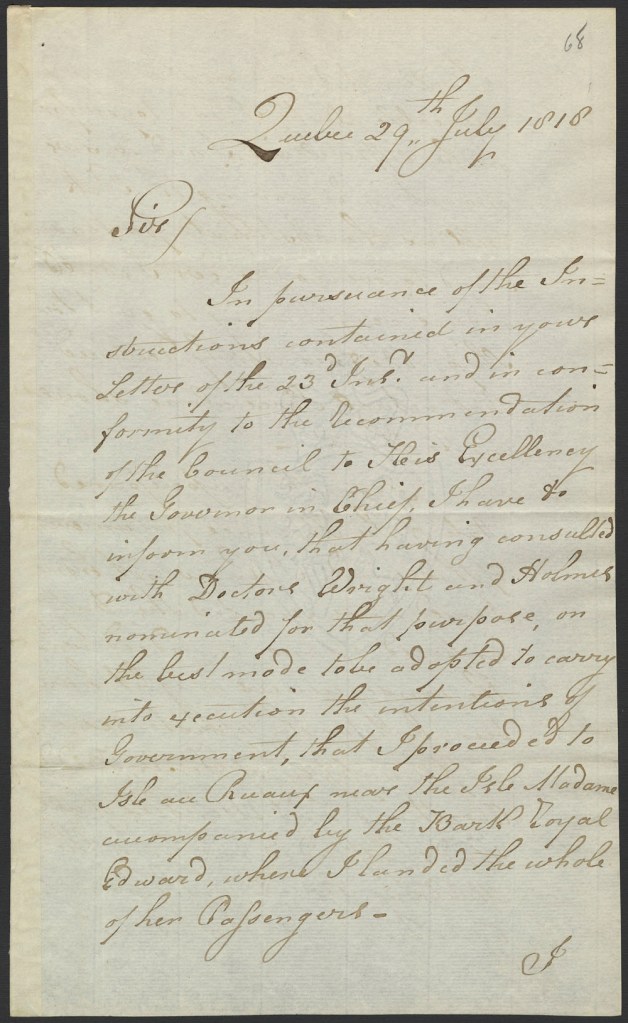 68
Quebec 29th July 1818
Sir
In pursuance of the In=
structions contained in your
Letter of the 23d Inst. and in con=
formity to the Recommendation
of the Council to His Excellency
the Governor in Chief, I have to
inform you, that having consulted
with Doctors Wright and Holmes
nominated for that purpose, on
the best mode to be adopted to carry
into execution the intentions of
Government, that I proceeded to
Isle au Ruaux near the Isle Madame
accompanied by the Bark Royal
Edward, where I landed the whole
of her Passengers -
I